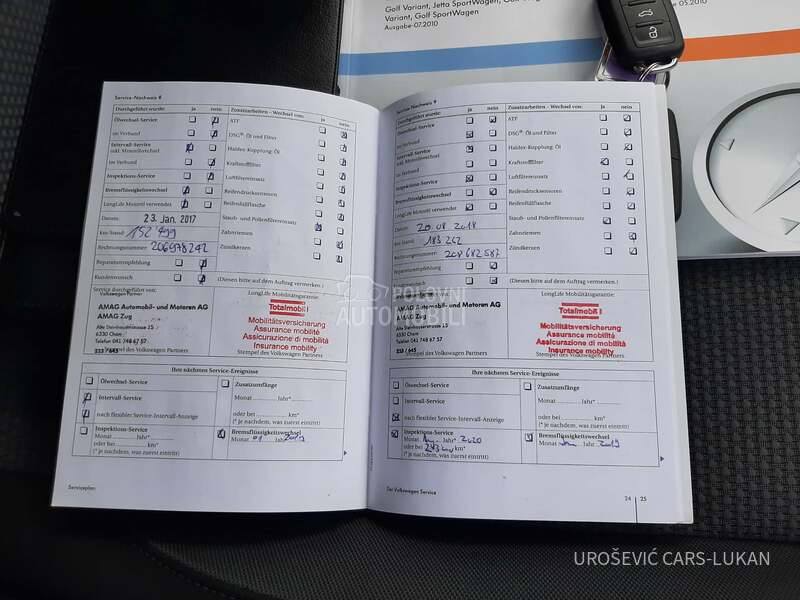 Golf Variant, Jetta SportWagen, Golf
Variant, Golf SportWagen
Ausgabe 07.2010
05.2010
Service-Nachweis 8
Durchgeführt wurde: ja nein Zusatzarbeiten - Wechsel von: ja nein
Ölwechsel-Service ATF
im Verbund DSG® Öl und Filter
Intervall-Service
inkl. Motorölwechsel Haldex-Kupplung-Öl
im Verbund Kraftstofffilter
Inspektions-Service Luftfiltereinsatz
Bremsflüssigkeitswechsel Reifendrucksensoren
LongLife Motoröl verwendet Reifenfüllflasche
Datum: 23. Jan. 2017 Staub- und Pollenfiltereinsatz
km-Stand: 152 499 Zahnriemen
Rechnungsnummer: 206978242 Zündkerzen
Reparaturempfehlung
Kundenwunsch (Diesen bitte auf dem Auftrag vermerken.)
Service durchgeführt von: LongLife Mobilitätsgarantie:
Volkswagen Partner
AMAG Automobil- und Motoren AG
AMAG Zug
Alte Steinhauserstrasse 15
6330 Cham
Telefon 041 748 67 57
333 / 645
Totalmobil!
Mobilitätsversicherung
Assurance mobilité
Assicurazione di mobilità
Insurance mobility
Stempel des Volkswagen Partners Stempel des Volkswagen Partners
Ihre nächsten Service-Ereignisse
Ölwechsel-Service Zusatzumfänge
Intervall-Service Monat Jahr*
nach flexibler Service-Intervall-Anzeige oder bei km*
(* je nachdem, was zuerst eintritt)
Inspektions-Service Bremsflüssigkeitswechsel
Monat Jahr* Monat 01 Jahr 2019
oder bei km*
(* je nachdem, was zuerst eintritt)
Serviceplan
Service-Nachweis 9
Durchgeführt wurde: ja nein Zusatzarbeiten - Wechsel von: ja nein
Ölwechsel-Service ATF
im Verbund DSG® Öl und Filter
Intervall-Service
inkl. Motorölwechsel Haldex-Kupplung-Öl
im Verbund Kraftstofffilter
Inspektions-Service Luftfiltereinsatz
Bremsflüssigkeitswechsel Reifendrucksensoren
LongLife Motoröl verwendet Reifenfüllflasche
Datum: 20.08.2018 Staub- und Pollenfiltereinsatz
km-Stand: 183 262 Zahnriemen
Rechnungsnummer: 208 682 587 Zündkerzen
Reparaturempfehlung
Kundenwunsch (Diesen bitte auf dem Auftrag vermerken.)
Service durchgeführt von: LongLife Mobilitätsgarantie:
Volkswagen Partner
AMAG Automobil- und Motoren AG
AMAG Zug
Alte Steinhauserstrasse 15
6330 Cham
Telefon 041 748 67 57
333 / 645
Totalmobil!
Mobilitätsversicherung
Assurance mobilité
Assicurazione di mobilità
Insurance mobility
Stempel des Volkswagen Partners Stempel des Volkswagen Partners
Ihre nächsten Service-Ereignisse
Ölwechsel-Service Zusatzumfänge
Intervall-Service Monat Jahr*
nach flexibler Service-Intervall-Anzeige oder bei km*
(* je nachdem, was zuerst eintritt)
Inspektions-Service Bremsflüssigkeitswechsel
Monat Jahr* 2020 Monat Jahr 2019
oder bei km*
(* je nachdem, was zuerst eintritt)
Der Volkswagen Service
24 25
POLOVNI
AUTOMOBILI
UROŠEVIĆ CARS-LUKAN